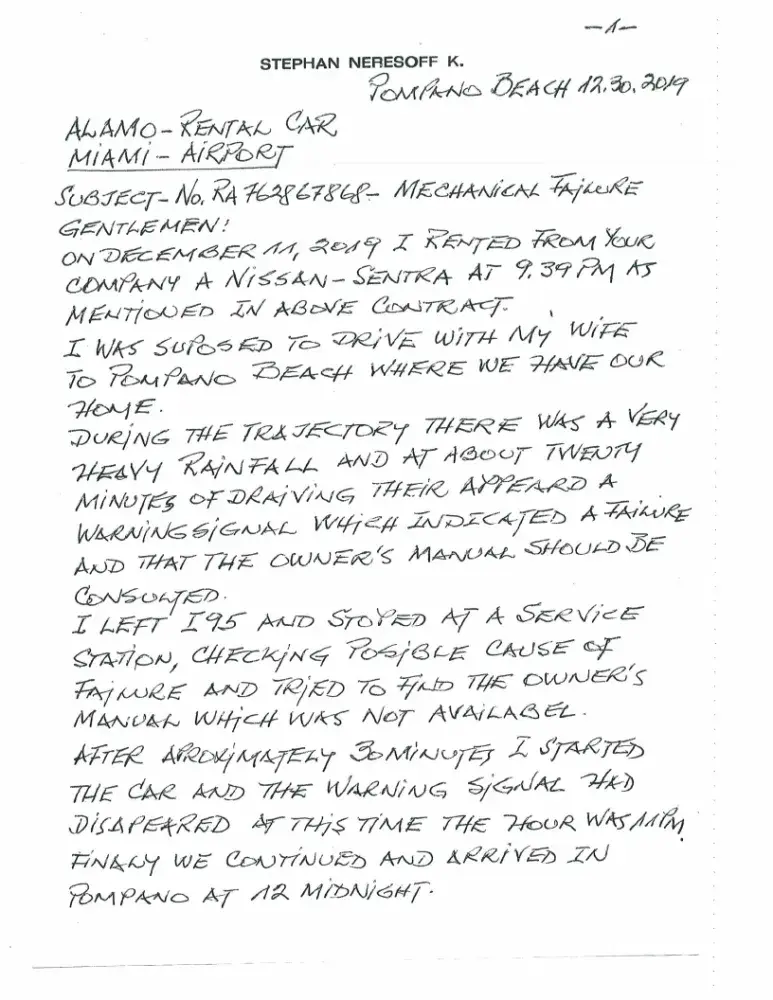 -1-
STEPHAN NERESOFF K.
POMPANO BEACH 12.30.2019
ALAMO - RENTAL CAR
MIAMI - AIRPORT
SUBJECT - No. RA 762867868 - MECHANICAL FAILURE
GENTLEMEN!
ON DECEMBER 11, 2019 I RENTED FROM YOUR
COMPANY A NISSAN - SENTRA AT 9.39 PM AS
MENTIONED IN ABOVE CONTRACT.
I WAS SUPOSED TO DRIVE WITH MY WIFE
TO POMPANO BEACH WHERE WE HAVE OUR
HOME.
DURING THE TRAJECTORY THERE WAS A VERY
HEAVY RAINFALL AND AT ABOUT TWENTY
MINUTES OF DRAIVING THEIR APPEARD A
WARNING SIGNAL WHICH INDICATED A FAILURE
AND THAT THE OWNER'S MANUAL SHOULD BE
CONSULTED.
I LEFT I95 AND STOPED AT A SERVICE
STATION, CHECKING POSIBLE CAUSE OF
FAILURE AND TRIED TO FIND THE OWNER'S
MANUAL WHICH WAS NOT AVAILABEL.
AFTER APROXIMATELY 30 MINUTES I STARTED
THE CAR AND THE WARNING SIGNAL HAD
DISAPEARED AT THIS TIME THE HOUR WAS 11 PM.
FINALY WE CONTINUED AND ARRIVED IN
POMPANO AT 12 MIDNIGHT.